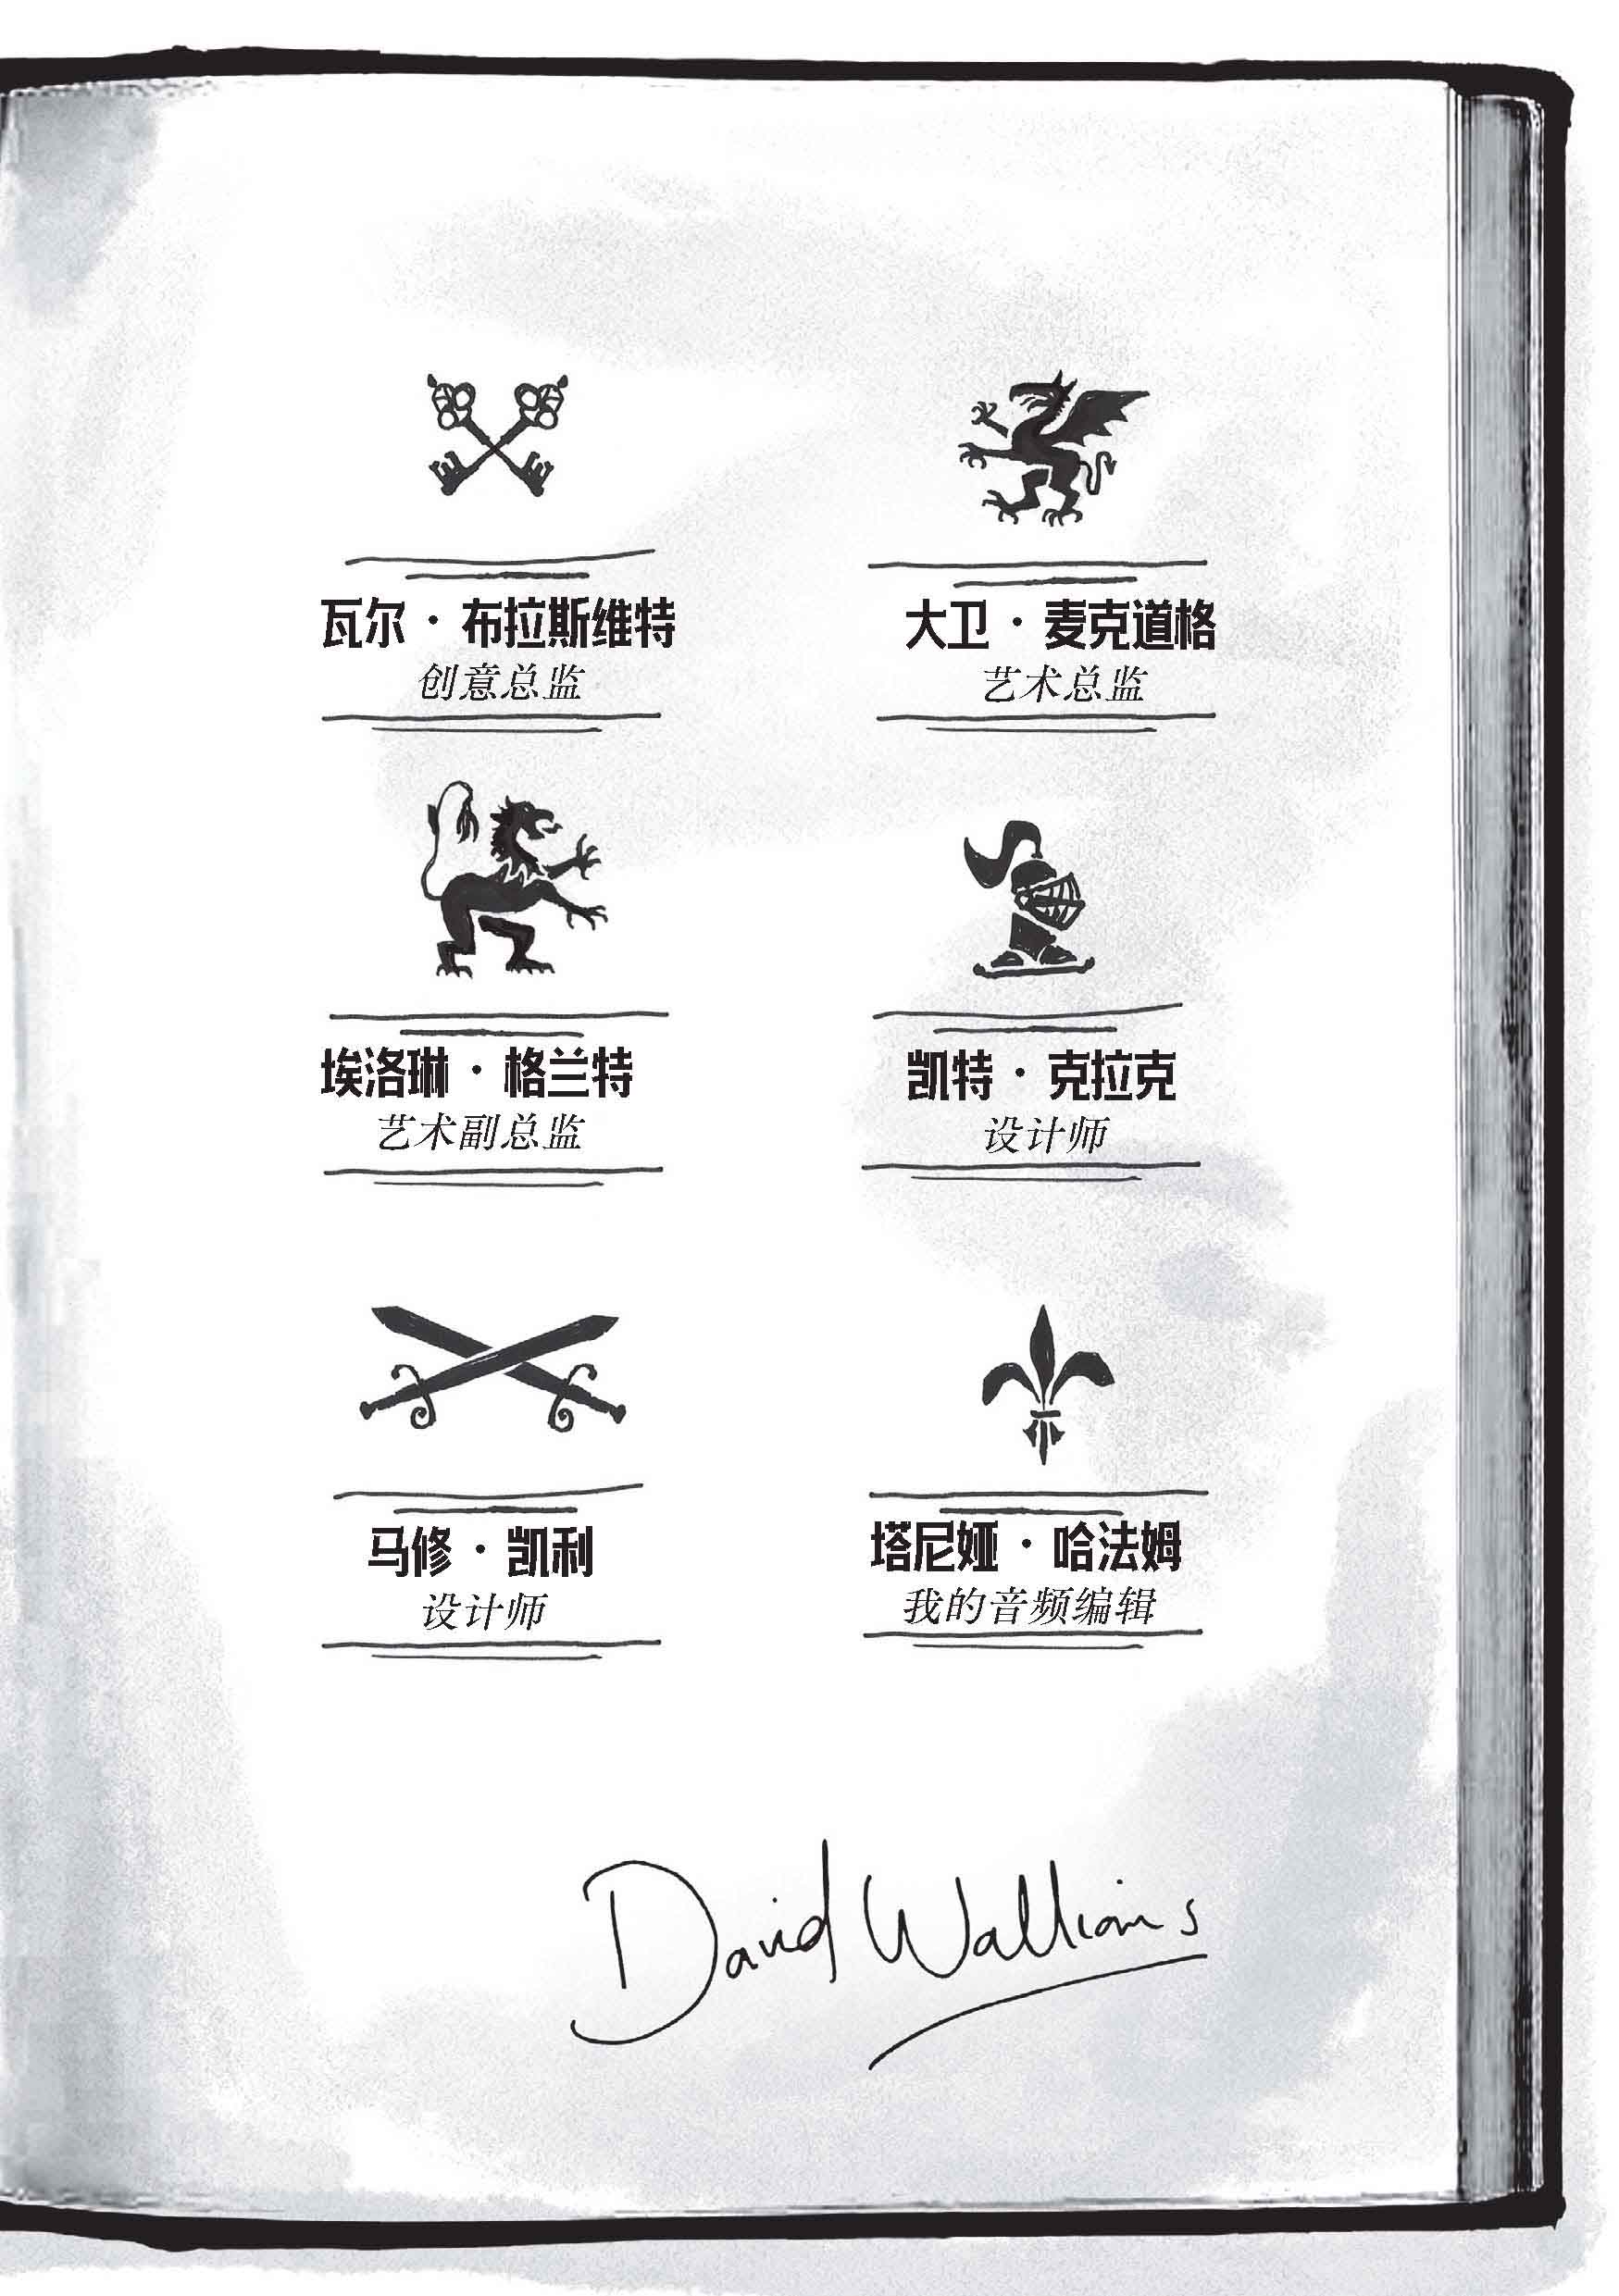 瓦尔·布拉斯维特
创意总监
大卫·麦克道格
艺术总监
埃洛琳·格兰特
艺术副总监
凯特·克拉克
设计师
马修·凯利
设计师
塔尼娅·哈法姆
我的音频编辑
David Walliams